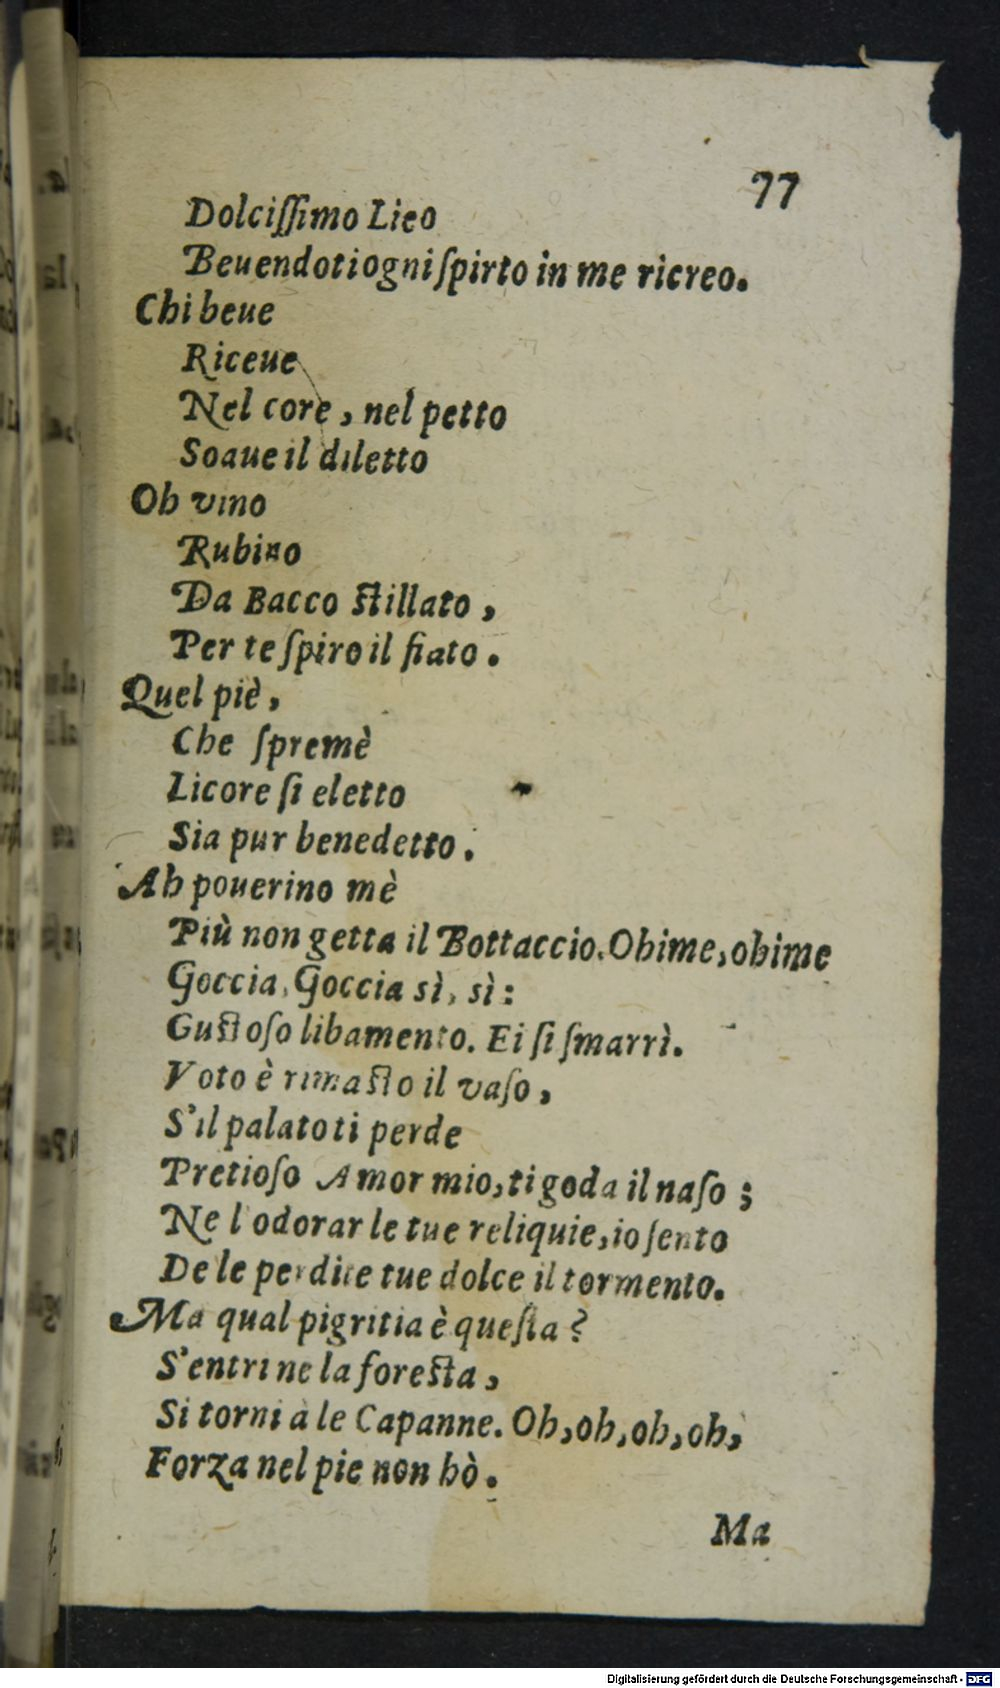 77
Dolciſſimo Lieo
Beuendoti ogni ſpirto in me ricreo.
Chi beue
Riceue
Nel core, nel petto
Soaue il diletto
Oh vino
Rubino
Da Bacco ſtillato,
Per te ſpiro il fiato.
Quel piè,
Che ſpremè
Licore ſi eletto
Sia pur benedetto.
Ah pouerino mè
Più non getta il Bottaccio. Ohime, ohime
Goccia, Goccia sì, sì:
Guſtoſo libamento. Ei ſi ſmarrì.
Voto è rimaſto il vaſo,
S'il palato ti perde
Pretioſo Amor mio, ti goda il naſo;
Ne l'odorar le tue reliquie, io ſento
De le perdite tue dolce il tormento.
Ma qual pigritia è queſta?
S'entri ne la foreſta,
Si torni à le Capanne. Oh, oh, oh, oh,
Forza nel pie non hò.
Ma
Digitalisierung gefördert durch die Deutsche Forschungsgemeinschaft - DFG